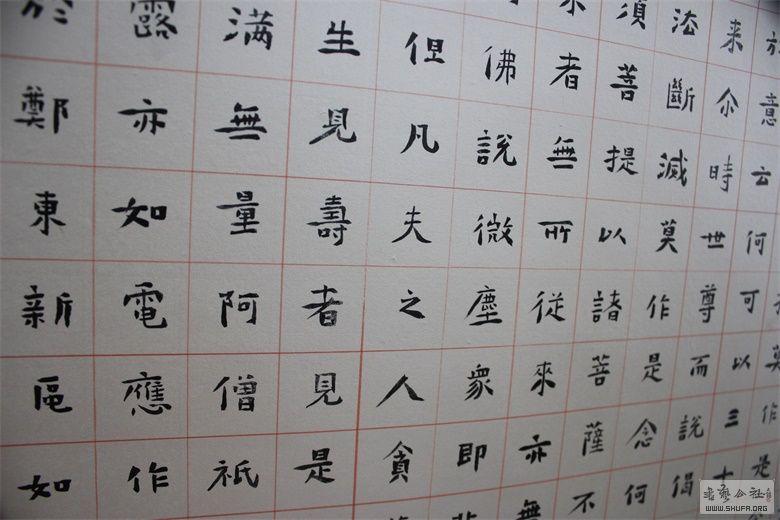 莫作是
於意云何可以三十
来尒時世尊而說偈
法斷滅莫作是念何
須菩提以諸菩薩不
者無所從來亦無
佛說微塵衆即非
但凡夫之人貪
生見壽者見是
满無量阿僧祇
露亦如電應作
於鄭東新區如
WWW.SHUFA.ORG